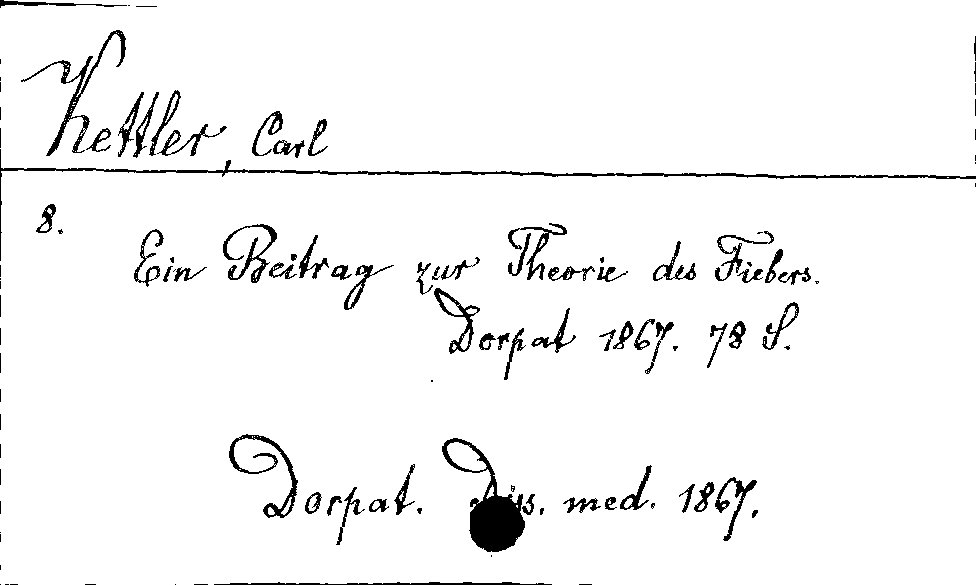 Kettler, Carl
8.
Ein Beitrag zur Theorie des Fiebers.
Dorpat 1867. 78 S.
Dorpat. Diss. med. 1867.